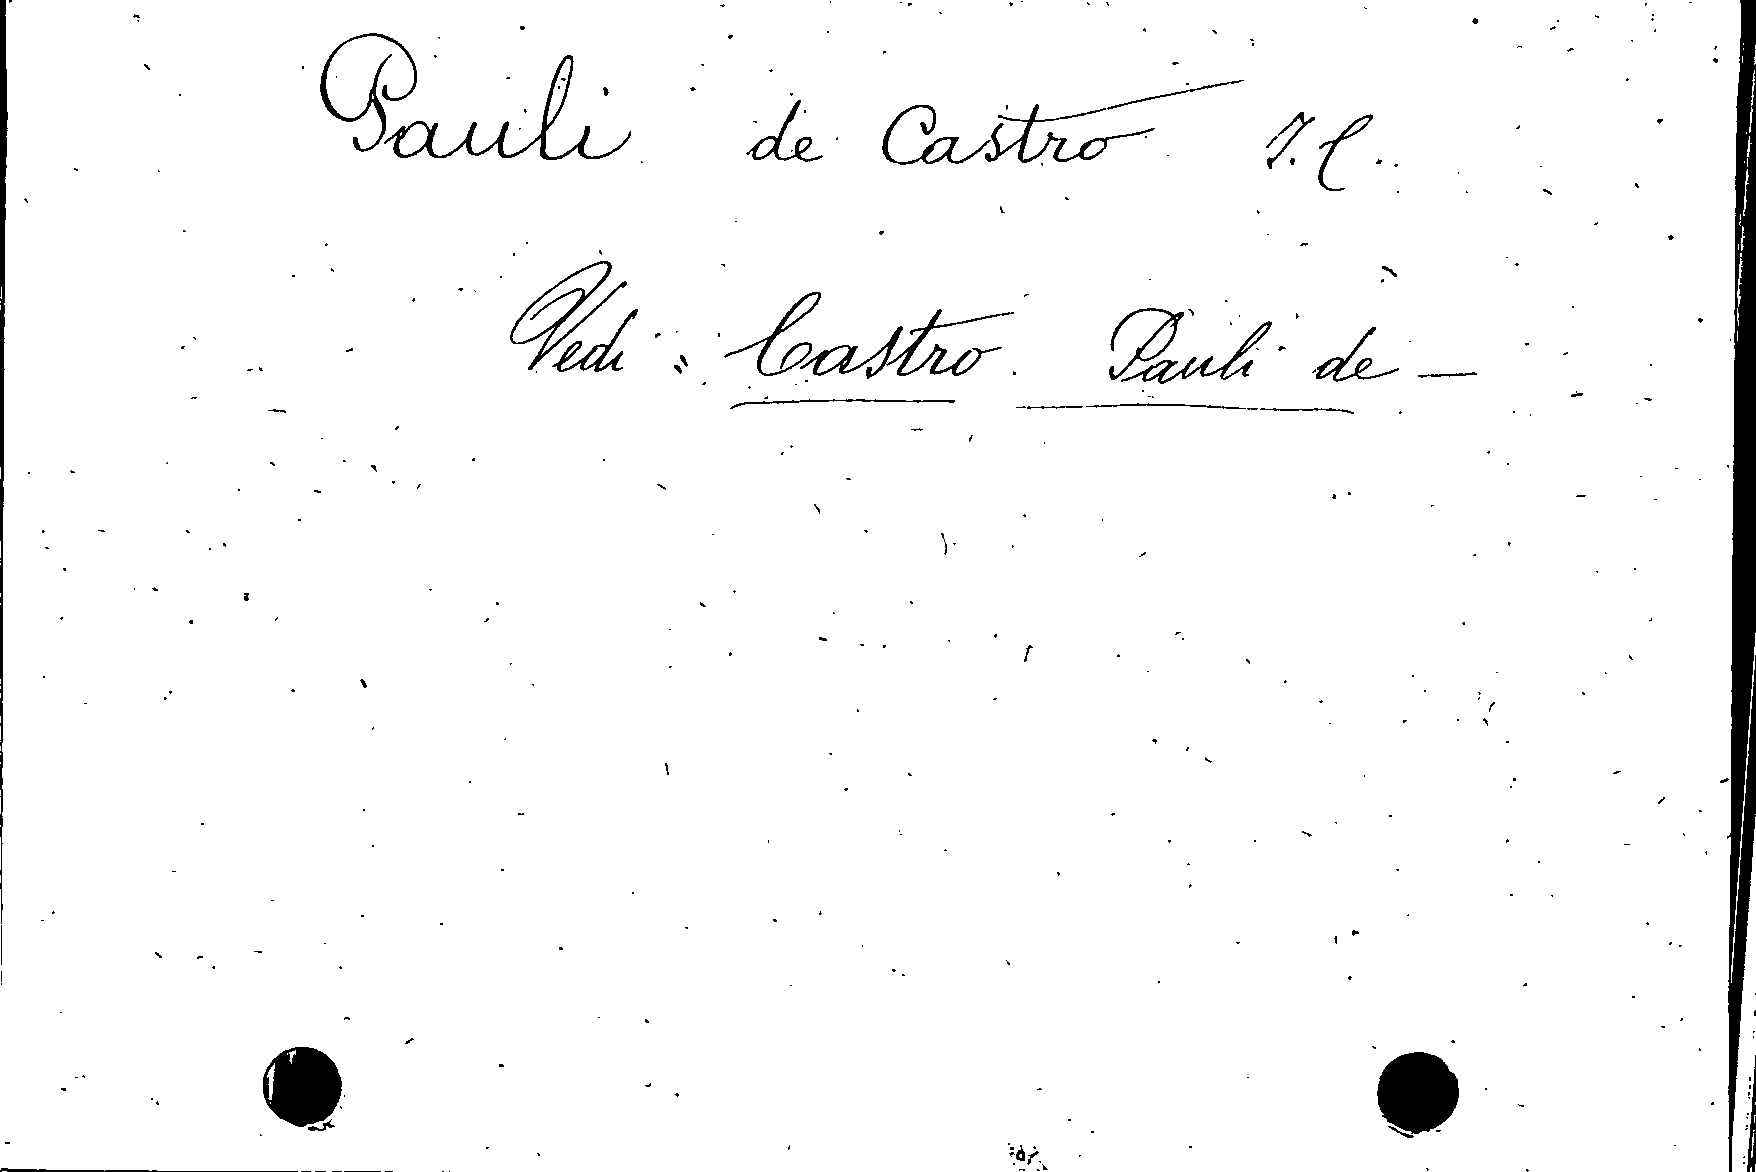 Pauli de Castro J. C.
Vedi: Castro Pauli de —